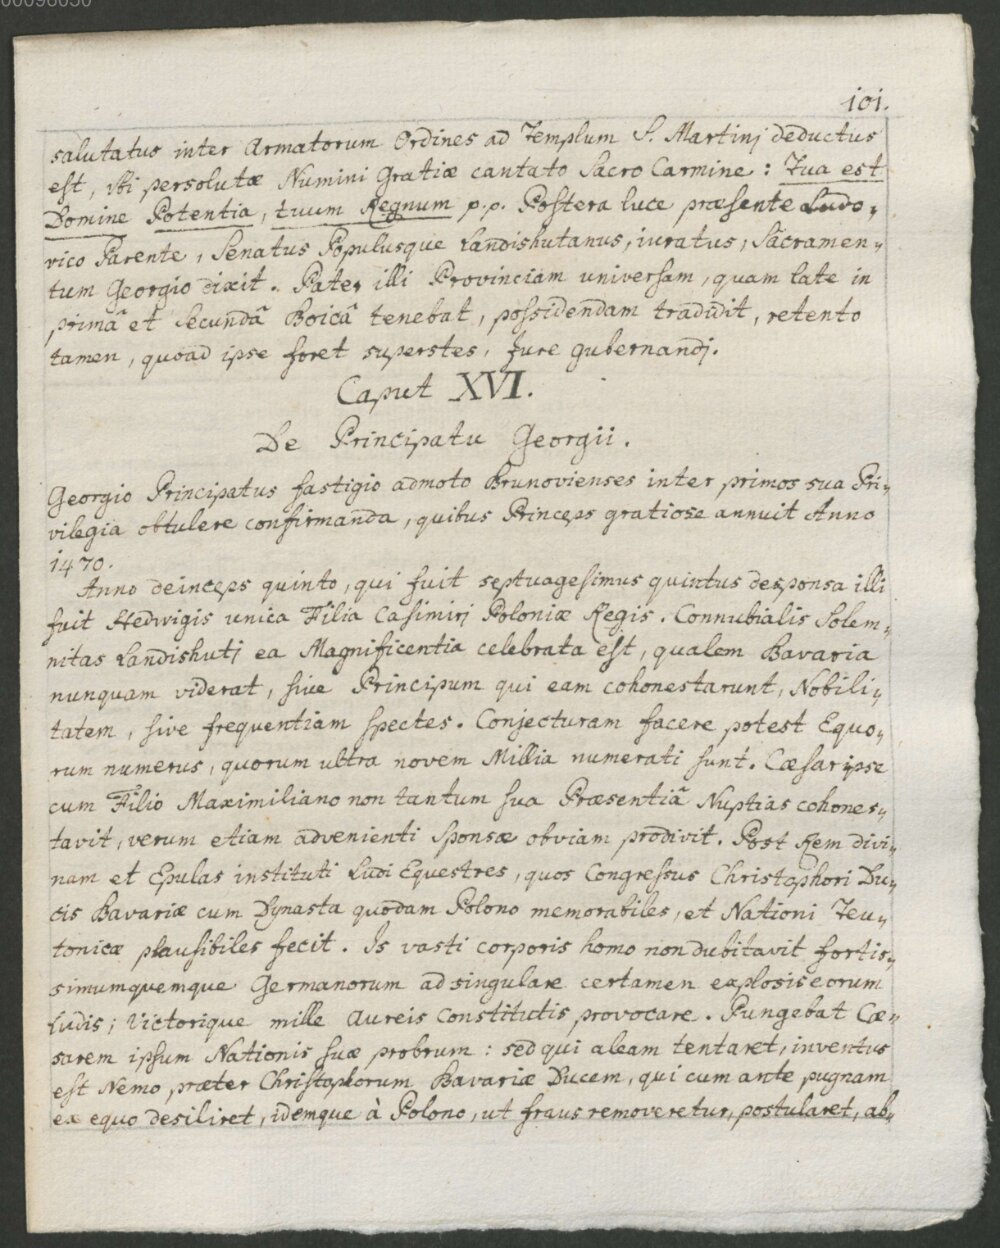 00096030
101.
salutatus inter Armatorum Ordines ad Templum S. Martinj deductus
est, ibi persolutæ Numini Gratiæ cantato Sacro Carmine: Tua est
Domine Potentia, tuum Regnum p.p. Postera luce præsente Ludo-
vico Parente, Senatus Populusque Landishutanus, iuratus, Sacramen-
tum Georgio dixit. Pater illi Provinciam universam, quam late in
primâ et Secundâ Boicâ tenebat, possidendam tradidit, retento
tamen, quoad ipse foret superstes, Jure gubernandj.
Caput XVI.
De Principatu Georgii.
Georgio Principatus fastigio admoto Brunovienses inter primos sua Pri-
vilegia obtulere confirmanda, quibus Princeps gratiose annuit Anno
1470.
Anno deinceps quinto, qui fuit septuagesimus quintus desponsa illi
fuit Hedwigis unica Filia Casimirj Poloniæ Regis. Connubialis Solem-
nitas Landishutj ea Magnificentia celebrata est, qualem Bavaria
nunquam viderat, sive Principum qui eam cohonestarunt, Nobili-
tatem, sive frequentiam spectes. Conjecturam facere potest Equo-
rum numerus, quorum ultra novem Millia numerati sunt. Cæsar ipse
cum Filio Maximiliano non tantum sua Præsentiâ Nuptias cohones-
tavit, verum etiam advenienti Sponsæ obviam prodivit. Post Rem divi-
nam et Epulas instituti Ludi Equestres, quos Congressus Christophori Du-
cis Bavariæ cum Dynasta quodam Polono memorabiles, et Nationi Teu-
tonicæ plausibiles fecit. Is vasti corporis homo non dubitavit fortis-
simumquemque Germanorum ad singulare certamen explosis eorum
Ludis; Victorique mille aureis Constitutis provocare. Pungebat Cæ-
sarem ipsum Nationis suæ probrum: sed qui aleam tentaret, inventus
est Nemo, præter Christophorum Bavariæ Ducem, qui cum ante pugnam
ex equo desiliret, idemque à Polono, ut fraus removeretur, postularet, ab-